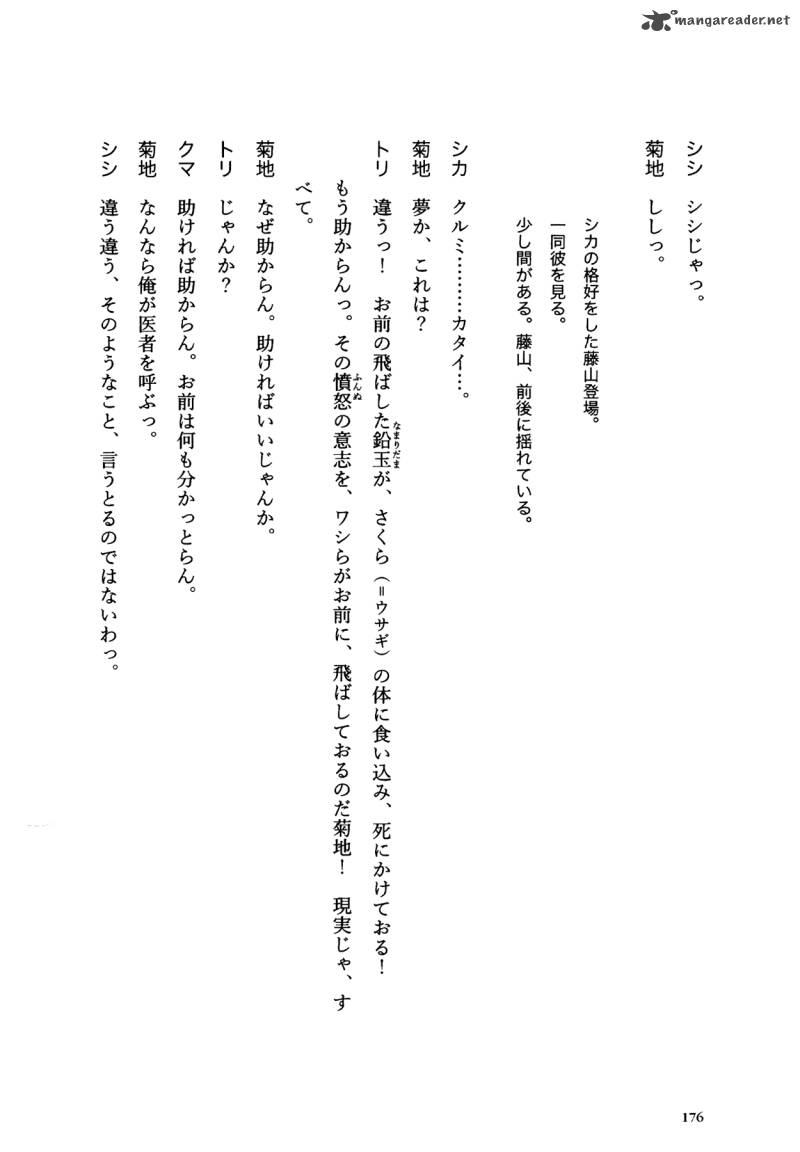 mangareader.net
シシ　シシじゃっ。
菊地　ししっ。
シカの格好をした藤山登場。
一同彼を見る。
少し間がある。藤山、前後に揺れている。
シカ　クルミ………カタイ…。
菊地　夢か、これは？
トリ　違うっ！　お前の飛ばした鉛玉が、さくら（＝ウサギ）の体に食い込み、死にかけておる！
なまりだま
もう助からんっ。その憤怒の意志を、ワシらがお前に、飛ばしておるのだ菊地！　現実じゃ、す
ふんぬ
べて。
菊地　なぜ助からん。助ければいいじゃんか。
トリ　じゃんか？
クマ　助ければ助からん。お前は何も分かっとらん。
菊地　なんなら俺が医者を呼ぶっ。
シシ　違う違う、そのようなこと、言うとるのではないわっ。
176